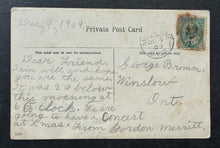 Dec, 9, 1909.
Private Post Card
Dear Friend
I am well and hope
you are the same.
It was 24 below
this morning at
6 O'clock. We are
going to have a Concert
at Xmas. From Gordon Merritt
George Bromm.
Winslow
Ont.